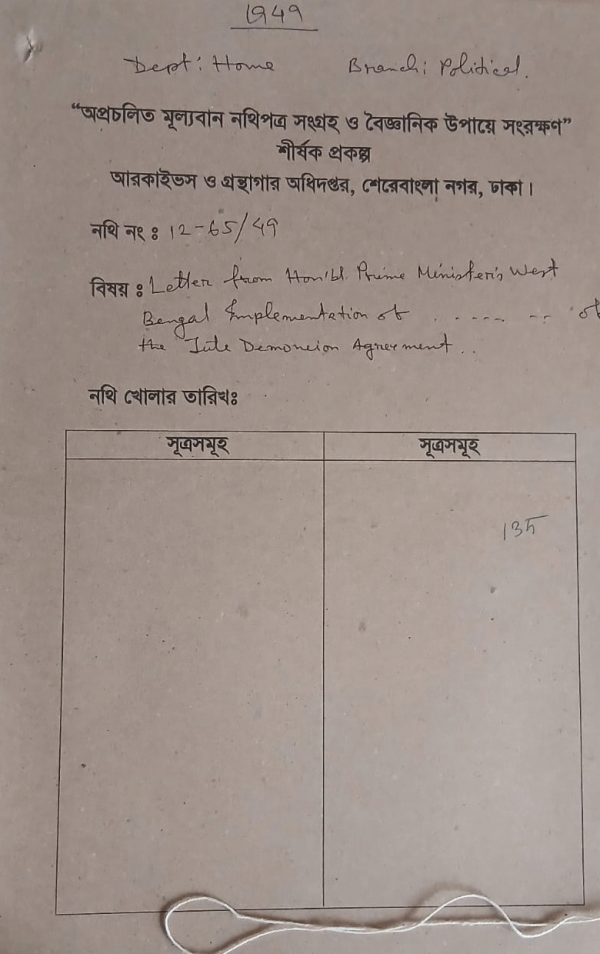 1949
Dept: Home Branch: Political.
“অপ্রচলিত মূল্যবান নথিপত্র সংগ্রহ ও বৈজ্ঞানিক উপায়ে সংরক্ষণ”
শীর্ষক প্রকল্প
আরকাইভস ও গ্রন্থাগার অধিদপ্তর, শেরেবাংলা নগর, ঢাকা।
নথি নং ঃ 12-65/49
বিষয় ঃ Letter from Hon'bl. Prime Minister's West
Bengal Implementation of ........ of
the Jute Agreement..
নথি খোলার তারিখঃ
সূত্রসমূহ সূত্রসমূহ